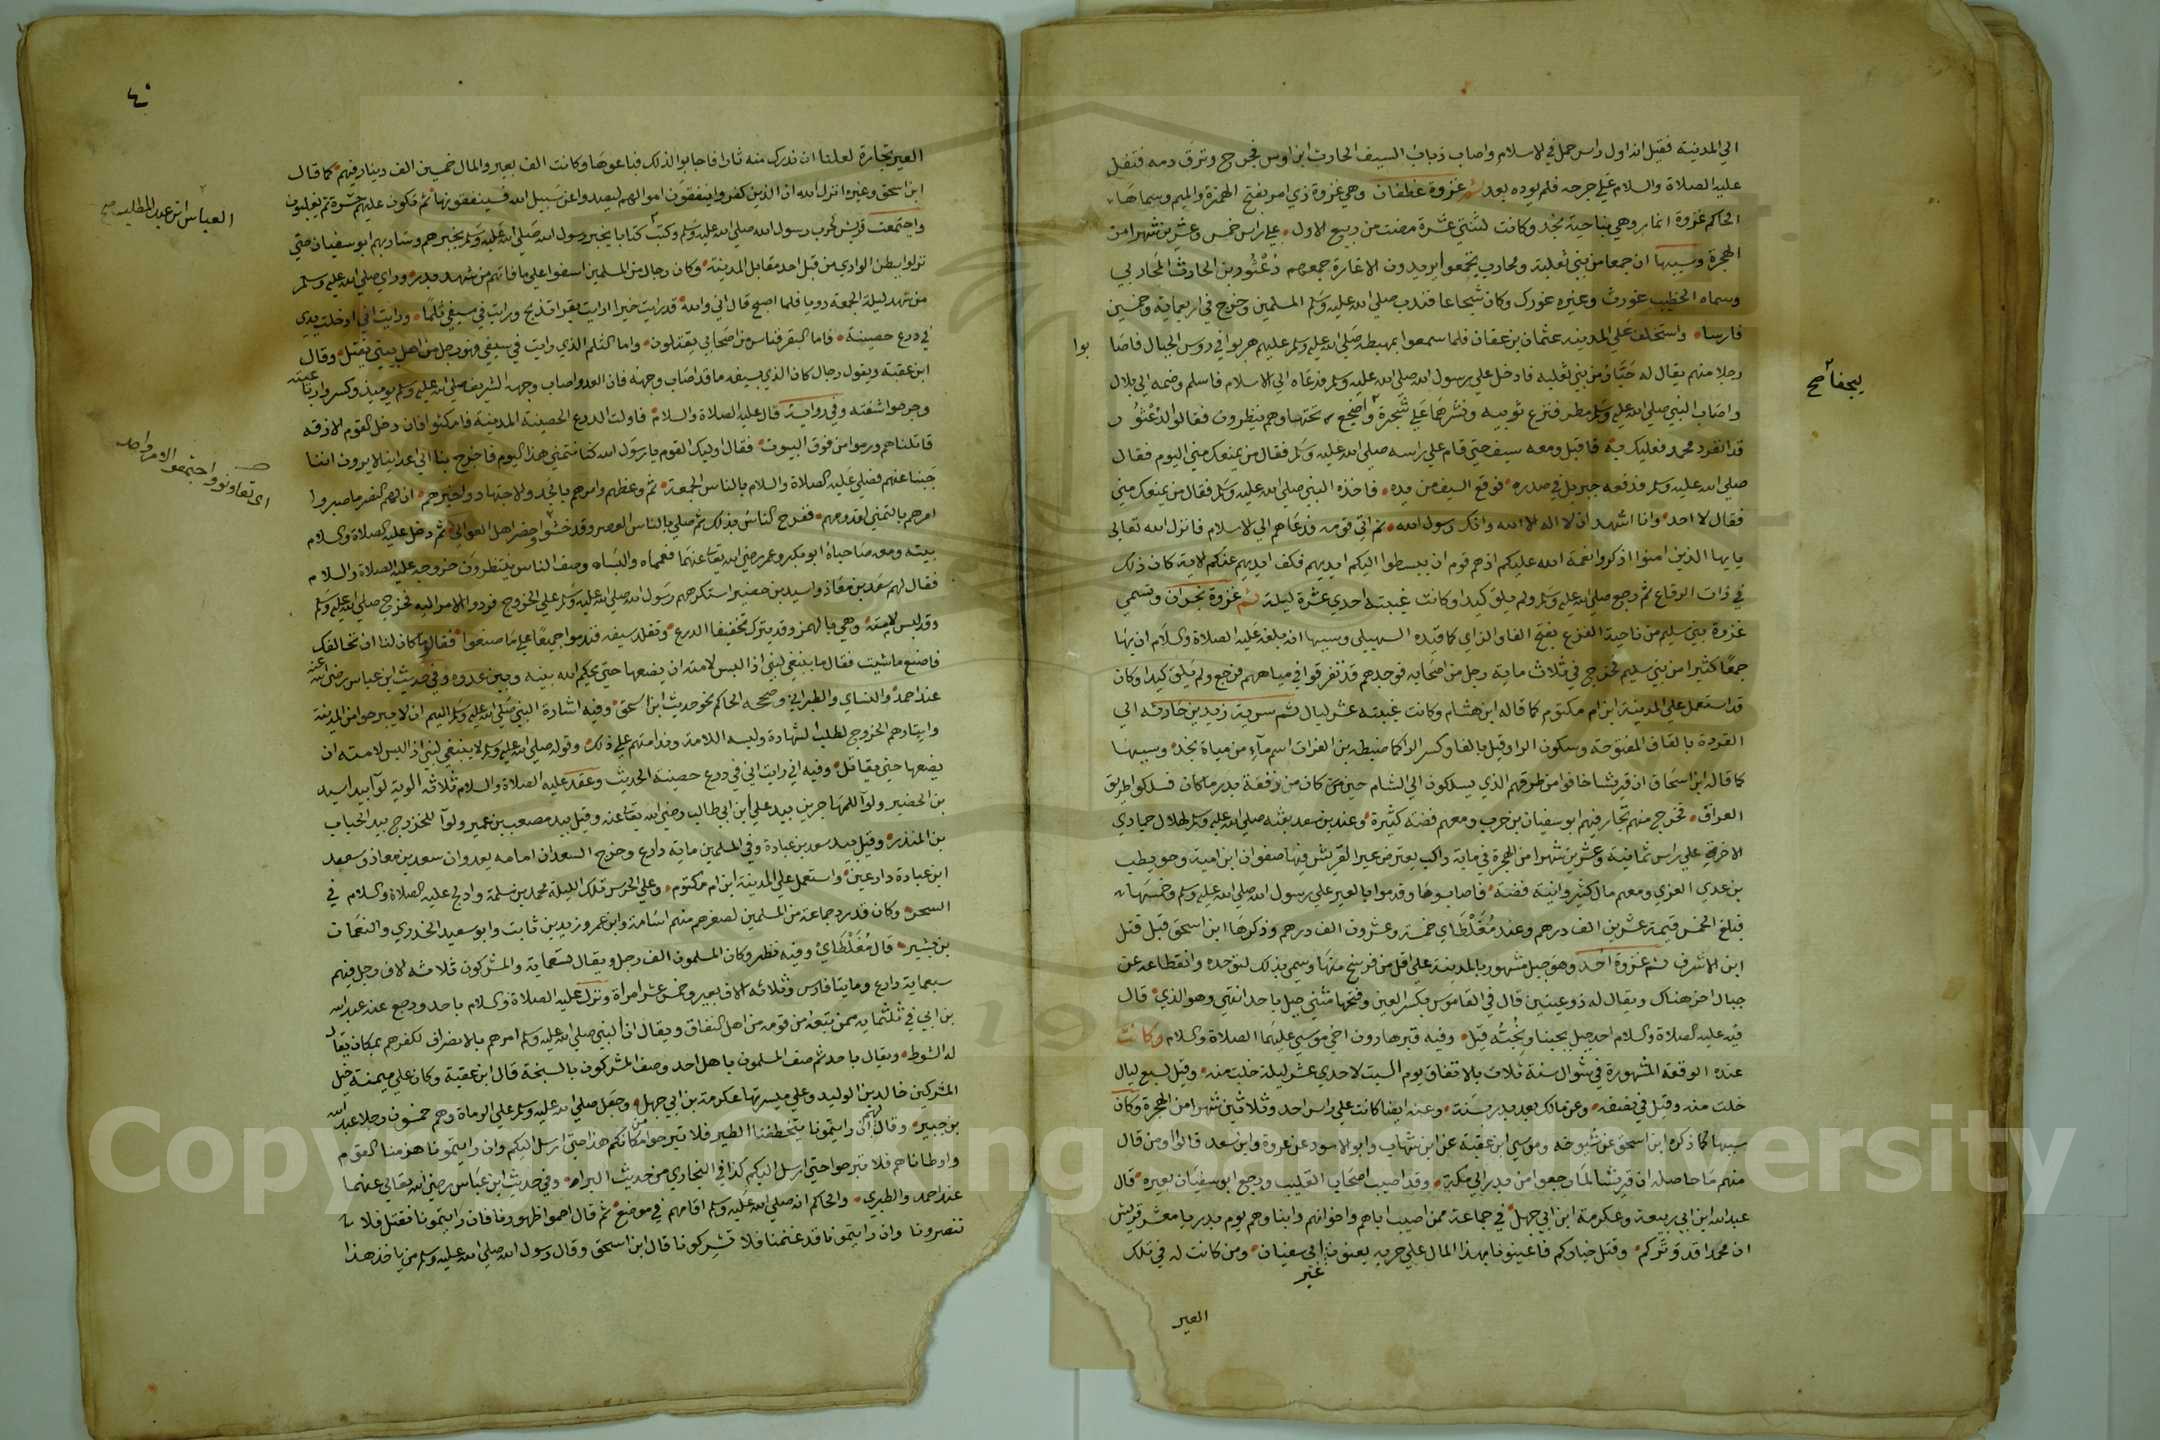 الي المدينة فقيل انه اول راس حمل في الاسلام واصاب ذباب السيف الحارث ابن اوس فجرح ونزف دمه فتفل
عليه الصلاة والسلام علي جرحه فلم يوذه بعد ثم غزوة غطفان وهي غزوة ذي امر بفتح الهمزة والميم وسماها
الحاكم غزوة انمار وهي بناحية نجد وكانت لثنتي عشرة مضت من ربيع الاول علي راس خمس وعشرين شهرا من
الهجرة وسببها ان جمعا من بني ثعلبة ومحارب تجمعوا يريدون الاغارة جمعهم دعثور بن الحارث المحاربي
وسماه الخطيب غورث وغيره غورك وكان شجاعا فندب صلي الله عليه وسلم المسلمين وخرج في اربعماية وخمسين
فارسا واستخلف علي المدينه عثمان بن عفان فلما سمعوا بمهبطه صلي الله عليه وسلم عليهم هربوا في روس الجبال فاصا
بوا
رجلا منهم يقال له حبان من بني ثعلبه فادخل علي رسول الله صلي الله عليه وسلم فدعاه الي الاسلام فاسلم وضمه الي بلال
واصاب النبي صلي الله عليه وسلم مطر فنزع ثوبيه ونشرهما علي شجرة واضجع تحتها وهم ينظرون فقالوا لدعثور
ليجفا صح
قد انفرد محمد فعليك به فاقبل ومعه سيف حتي قام علي راسه صلي الله عليه وسلم فقال من يمنعك مني اليوم فقال
صلي الله عليه وسلم فدفعه جبريل في صدره فوقع السيف من يده فاخذه النبي صلي الله عليه وسلم فقال من يمنعك مني
فقال لا احد وانا اشهد ان لا اله الا الله وانك رسول الله ثم اتي قومه فدعاهم الي الاسلام فانزل الله تعالي
يايها الذين امنوا اذكروا نعمة الله عليكم اذ هم قوم ان يبسطوا اليكم ايديهم فكف ايديهم عنكم الاية كان ذلك
في ذات الرقاع ثم رجع صلي الله عليه وسلم ولم يلق كيدا وكانت غيبته احدي عشرة ليلة ثم غزوة نجران وتسمي
غزوة بني سليم من ناحية الفرع بفتح الفا والراي كما قيده السهيلي وسببها انه بلغه عليه الصلاة والسلام ان بها
جمعا كثيرا من بني سليم فخرج في ثلاث ماية رجل من اصحابه فوجدهم قد تفرقوا في مياههم فرجع ولم يلق كيدا وكان
قد استعمل علي المدينة ابن ام مكتوم كما قاله ابن هشام وكانت غيبته عشر ليال ثم سرية زيد بن حارثه الي
القردة بالقاف المفتوحة وسكون الرا وقيل بالفا وكسر الرا كما ضبطه بن الفرات اسم ماء من مياة نجد وسببها
كما قاله ابن اسحاق ان قريشا خافوا من طريقهم الذي يسلكون الي الشام حين من كان من وقعة بدر ما كان فسلكوا طريق
العراق فخرج منهم تجار فيهم ابو سفيان بن حرب ومعهم فضه كثيرة وعند بن سعد بعثه صلي الله عليه وسلم لهلال جمادي
الاخرة علي راس ثمانية وعشرين شهرا من الهجرة في ماية راكب يعترض عير القريش فيها صفوان ابن امية وحويطب
بن عدي العزي ومعهم مال كثير وانية فضة فاصابوها وقدموا بالعير علي رسول الله صلي الله عليه وسلم وخمسها
فبلغ الخمس قيمة عشرين الف درهم وعند مغلطاي خمسة وعشرون الف درهم وذكرها ابن اسحق قبل قتل
ابن الاشرف ثم غزوة احد وهو جبل مشهور بالمدينة علي اقل من فرسخ منها وسمي بذلك لتوحده وانقطاعه عن
جبال اخر هناك ويقال له ذو عينين قال في القاموس بكسر العين وفتحها مثني جبل باحد انتهي وهو الذي قال
فيه عليه الصلاة والسلام احد جبل يحبنا ونحبه قيل وفيه قبر هارون اخي موسي عليهما الصلاة والسلام وكانت
عنده الوقعة المشهورة في شوال سنة ثلاث بالاتفاق يوم السبت لاحدي عشر ليلة خلت منه وقيل لسبع ليال
خلت منه وقيل في نصفه وعن مالك بعد بدر بسنة وعنه ايضا كانت علي راس احد وثلاثين شهرا من الهجرة وكان
سببها كما ذكره ابن اسحق عن شيوخه وموسي ابن عقبة عن ابن شهاب وابو الاسود عن عروة وابن سعد قالوا ومن قال
منهم ما حاصله ان قريشا لما رجعوا من بدر الي مكة وقد اصيب اصحاب القليب ورجع ابو سفيان بعيره قال
عبد الله ابن ابي ربيعة وعكرمة ابن ابي جهل في جماعة ممن اصيب اباهم واخوانهم وابناوهم يوم بدر يا معشر قريش
ان محمدا قد وتركم وقتل خياركم فاعينونا بهذا المال علي حربه يعنون ابي سفيان ومن كانت له في تلك
عير
العير
٤٠
العير تجارة لعلنا ان ندرك منه ثارا فاجابوا لذلك فباعوها وكانت الف بعير والمال خمسين الف دينار فيهم كما قال
ابن اسحق وغيره انزل الله ان الذين كفروا ينفقون اموالهم ليصدوا عن سبيل الله فسينفقونها ثم تكون عليهم حسرة ثم يغلبون
واجتمعت قريش لحرب رسول الله صلي الله عليه وسلم وكتب كتابا يخبر رسول الله صلي الله عليه وسلم بخبرهم وسار بهم ابو سفيان حتي
العباس ابن عبد المطلب صح
نزلوا ببطن الوادي من قبل احد مقابل المدينة وكان رجال من المسلمين اسفوا علي ما فاتهم من شهد بدر وراي صلي الله عليه وسلم
من شهد ليلة الجمعة رويا فلما اصبح قال اني والله قد رايت خيرا رايت بقرا تذبح ورايت في سيفي ثلما ورايت اني ادخلت يدي
في درع حصينة فاما البقر فناس من اصحابي يقتلون واما الثلم الذي رايت في سيفي فهو رجل من اهل بيتي يقتل وقال
ابن عقبة ويقول رجال كان الذي بسيفه ما قد اصاب وجهه فان العدو اصاب وجهه الشريف صلي الله عليه وسلم يوميذ وكسروا رباعيته
وجرحوا شفته وفي رواية قال عليه الصلاة والسلام فاولت الدرع الحصينة المدينة فامكثوا فان دخل القوم الازقة
قاتلناهم ورموا من فوق البيوت فقال اوليك القوم يا رسول الله كنا نتمني هذا اليوم فاخرج بنا الي اعدائنا لا يرون اننا
جبنا عنهم فصلي عليه الصلاة والسلام بالناس الجمعة ثم وعظهم وامرهم بالجد والاجتهاد واخبرهم ان لهم النصر ما صبروا
اي تعاونوا واجتمعوا لامر واحد
امرهم بالتمني لعدوهم ففرح الناس بذلك ثم صلي بالناس العصر وقد حشدوا وحضر اهل العوالي ثم دخل عليه الصلاة والسلام
بيته ومعه صاحباه ابو بكر وعمر رضي الله تعالي عنهما فعمماه والبساه وصف الناس ينتظرون خروجه عليه الصلاة والسلام
فقال لهم سعد بن معاذ واسيد بن حضير استكرهتم رسول الله صلي الله عليه وسلم علي الخروج فردوا الامر اليه فخرج صلي الله عليه وسلم
وقد لبس لامته وهي بالهمز وقد يترك تخفيفا الدرع وتقلد سيفه فندموا جميعا علي ما صنعوا فقالوا ما كان لنا ان نخالفك
فاصنع ماشيت فقال ما ينبغي لنبي اذا لبس لامته ان يضعها حتي يحكم الله بينه وبين عدوه وفي حديث ابن عباس رضي الله عنه
عند احمد والنساي والطبراني وصححه الحاكم نحو حديث ابن اسحق وفيه اشارة النبي صلي الله عليه وسلم اليهم ان لا يبرحوا من المدينة
وايثارهم الخروج لطلب الشهادة ولبسه اللامة وندامتهم علي ذلك وقوله صلي الله عليه وسلم لا ينبغي لنبي اذا لبس لامته ان
يضعها حتي يقاتل وفيه اني رايت اني في درع حصينة الحديث وعقد عليه الصلاة والسلام ثلاثة الوية لوآ بيد اسيد
بن الحضير ولوآ للمهاجرين بيد علي ابن ابي طالب رضي الله تعالي عنه وقيل بيد مصعب بن عمير ولوآ للخزرج بيد الحباب
بن المنذر وقيل بيد سعد بن عبادة وفي المسلمين ماية دارع وخرج السعدان امامه يعدوان سعد بن معاذ وسعد
ابن عبادة دارعين واستعمل علي المدينة ابن ام مكتوم وعلي الحرس تلك الليلة محمد بن مسلمة وادلج عليه الصلاة والسلام في
السحر وكان قد رد جماعة من المسلمين لصغرهم منهم اسامة وابن عمر وزيد بن ثابت وابو سعيد الخدري والنعمان
بن بشير قال مغلطاي وفيه نظر وكان المسلمون الف رجل ويقال تسعماية والمشركون ثلاثه الاف رجل فيهم
سبعماية دارع ومايتا فارس وثلاثه الاف بعير وخمس عشر امراة ونزل عليه الصلاة والسلام باحد ورجع عنه عبد الله
بن ابي في ثلثماية ممن تبعه من قومه من اهل النفاق ويقال ان النبي صلي الله عليه وسلم امرهم بالانصراف لكفرهم بمكان يقال
له الشوط ويقال باحد ثم صف المسلمون باهل احد وصف المشركون بالسبخة قال ابن عقبة وكان علي ميمنة خيل
المشركين خالد بن الوليد وعلي ميسرتها عكرمة بن ابي جهل وجعل صلي الله عليه وسلم علي الرماة وهم خمسون رجلا عبد الله
بن جبير وقال لهم ان رايتمونا يتخطفنا الطير فلا تبرحوا من مكانكم هذا حتي ارسل اليكم وان رايتمونا هزمنا القوم
واوطاناهم فلا تبرحوا حتي ارسل اليكم كذا في البخاري من حديث البراء وفي حديث ابن عباس رضي الله تعالي عنهما
عند احمد والطبري والحاكم انه صلي الله عليه وسلم اقامهم في موضع ثم قال احموا ظهورنا فان رايتمونا نقتل فلا
تنصرونا وان رايتمونا قد غنمنا فلا تشركونا قال ابن اسحق وقال رسول الله صلي الله عليه وسلم من ياخذ هذا
Copyright © King Saud University